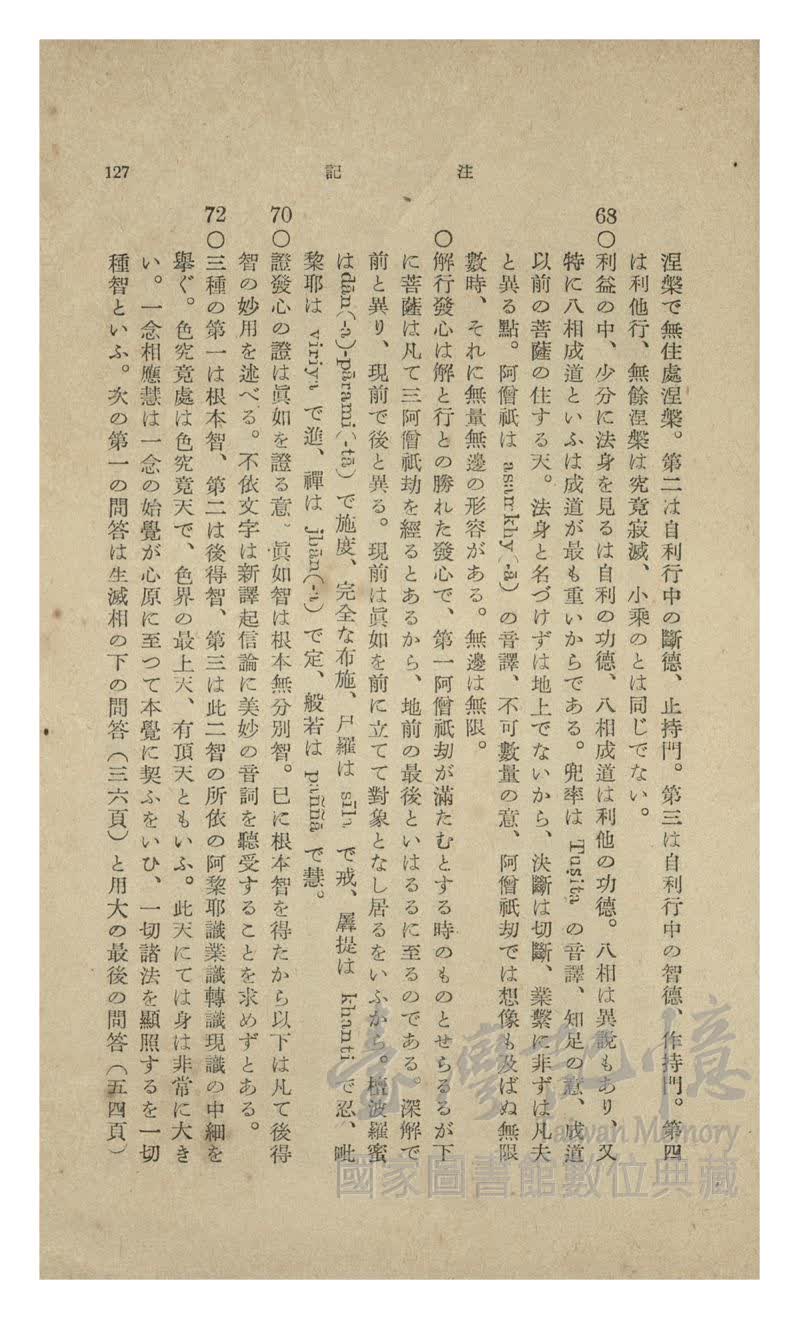 注記
127
涅槃で無住處涅槃。第二は自利行中の斷德、止持門。第三は自利行中の智德、作持門。第四
は利他行、無餘涅槃は究竟寂滅、小乘のとは同じでない。
68〇利益の中、少分に法身を見るは自利の功德、八相成道は利他の功德。八相は異說もあり、又
特に八相成道といふは成道が最も重いからである。兜率は Tuṣita の音譯、知足の意、成道
以前の菩薩の住する天。法身と名づけずは地上でないから、決斷は切斷、業繫に非ずは凡夫
と異る點。阿僧祇は asaṁkhy(-ā) の音譯、不可數量の意、阿僧祇劫では想像も及ばぬ無限
數時、それに無量無邊の形容がある。無邊は無限。
〇解行發心は解と行との勝れた發心で、第一阿僧祇劫が滿たむとする時のものとせらるるが下
に菩薩は凡て三阿僧祇劫を經るとあるから、地前の最後といはるるに至るのである。深解で
前と異り、現前で後と異る。現前は眞如を前に立てて對象となし居るをいふから。檀波羅蜜
はdān(-a)-pārami(-tā) で施度、完全な布施、尸羅は sīla で戒、羼提は khanti で忍、毗
黎耶は viriya で進、禪は jhān(-a) で定、般若は paññā で慧。
70〇證發心の證は眞如を證る意。眞如智は根本無分別智。已に根本智を得たから以下は凡て後得
智の妙用を述べる。不依文字は新譯起信論に美妙の音詞を聽受することを求めずとある。
72〇三種の第一は根本智、第二は後得智、第三は此二智の所依の阿黎耶識業識轉識現識の中細を
擧ぐ。色究竟處は色究竟天で、色界の最上天、有頂天ともいふ。此天にては身は非常に大き
い。一念相應慧は一念の始覺が心原に至つて本覺に契ふをいひ、一切諸法を顯照するを一切
種智といふ。次の第一の問答は生滅相の下の問答（三六頁）と用大の最後の問答（五四頁）
臺灣記憶
Taiwan Memory
國家圖書館數位典藏